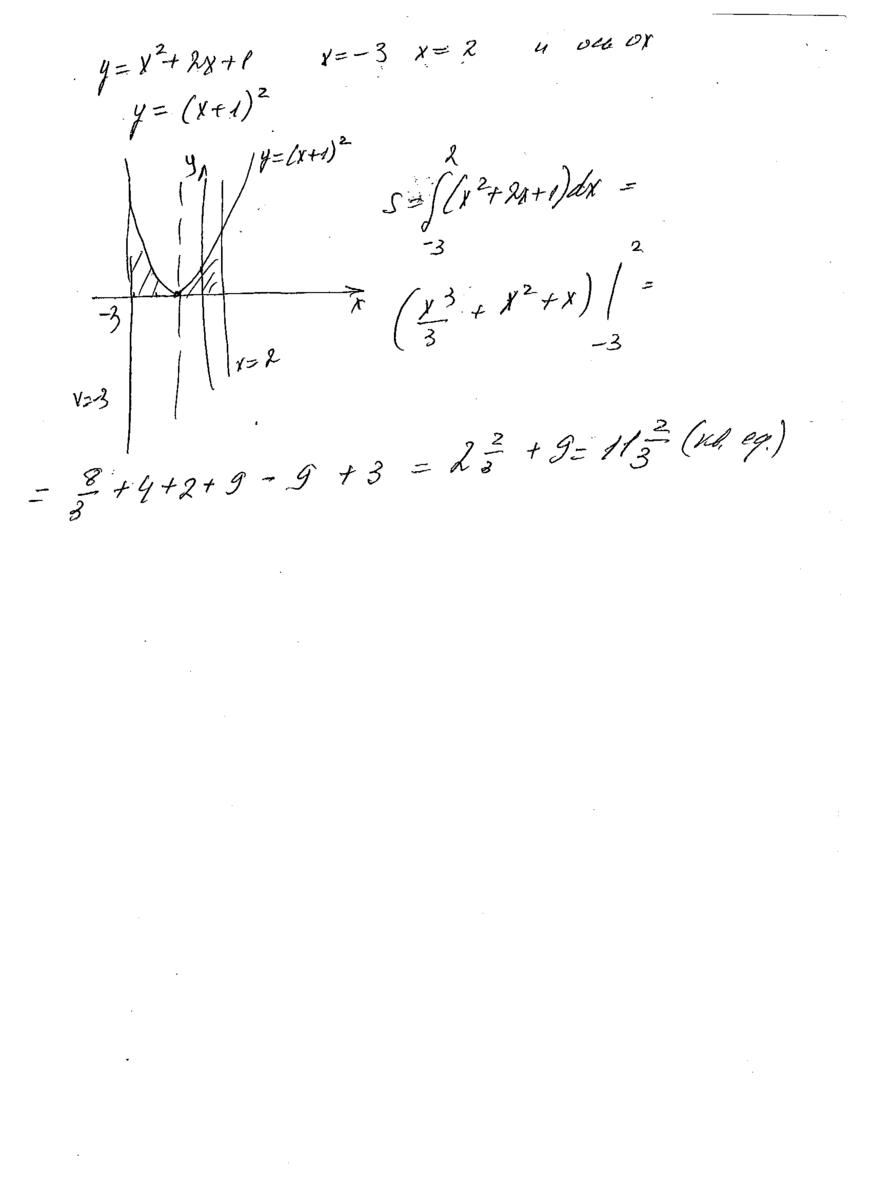 y = x² + 2x + 1 x = -3 x = 2 и ось ox
y = (x+1)²
y
y = (x+1)²
x
-3
x = 2
x = -3
S = ∫₋₃² (x² + 2x + 1)dx =
(x³/3 + x² + x) |₋₃² =
= 8/3 + 4 + 2 + 9 - 9 + 3 = 2 2/3 + 9 = 11 2/3 (кв. ед.)